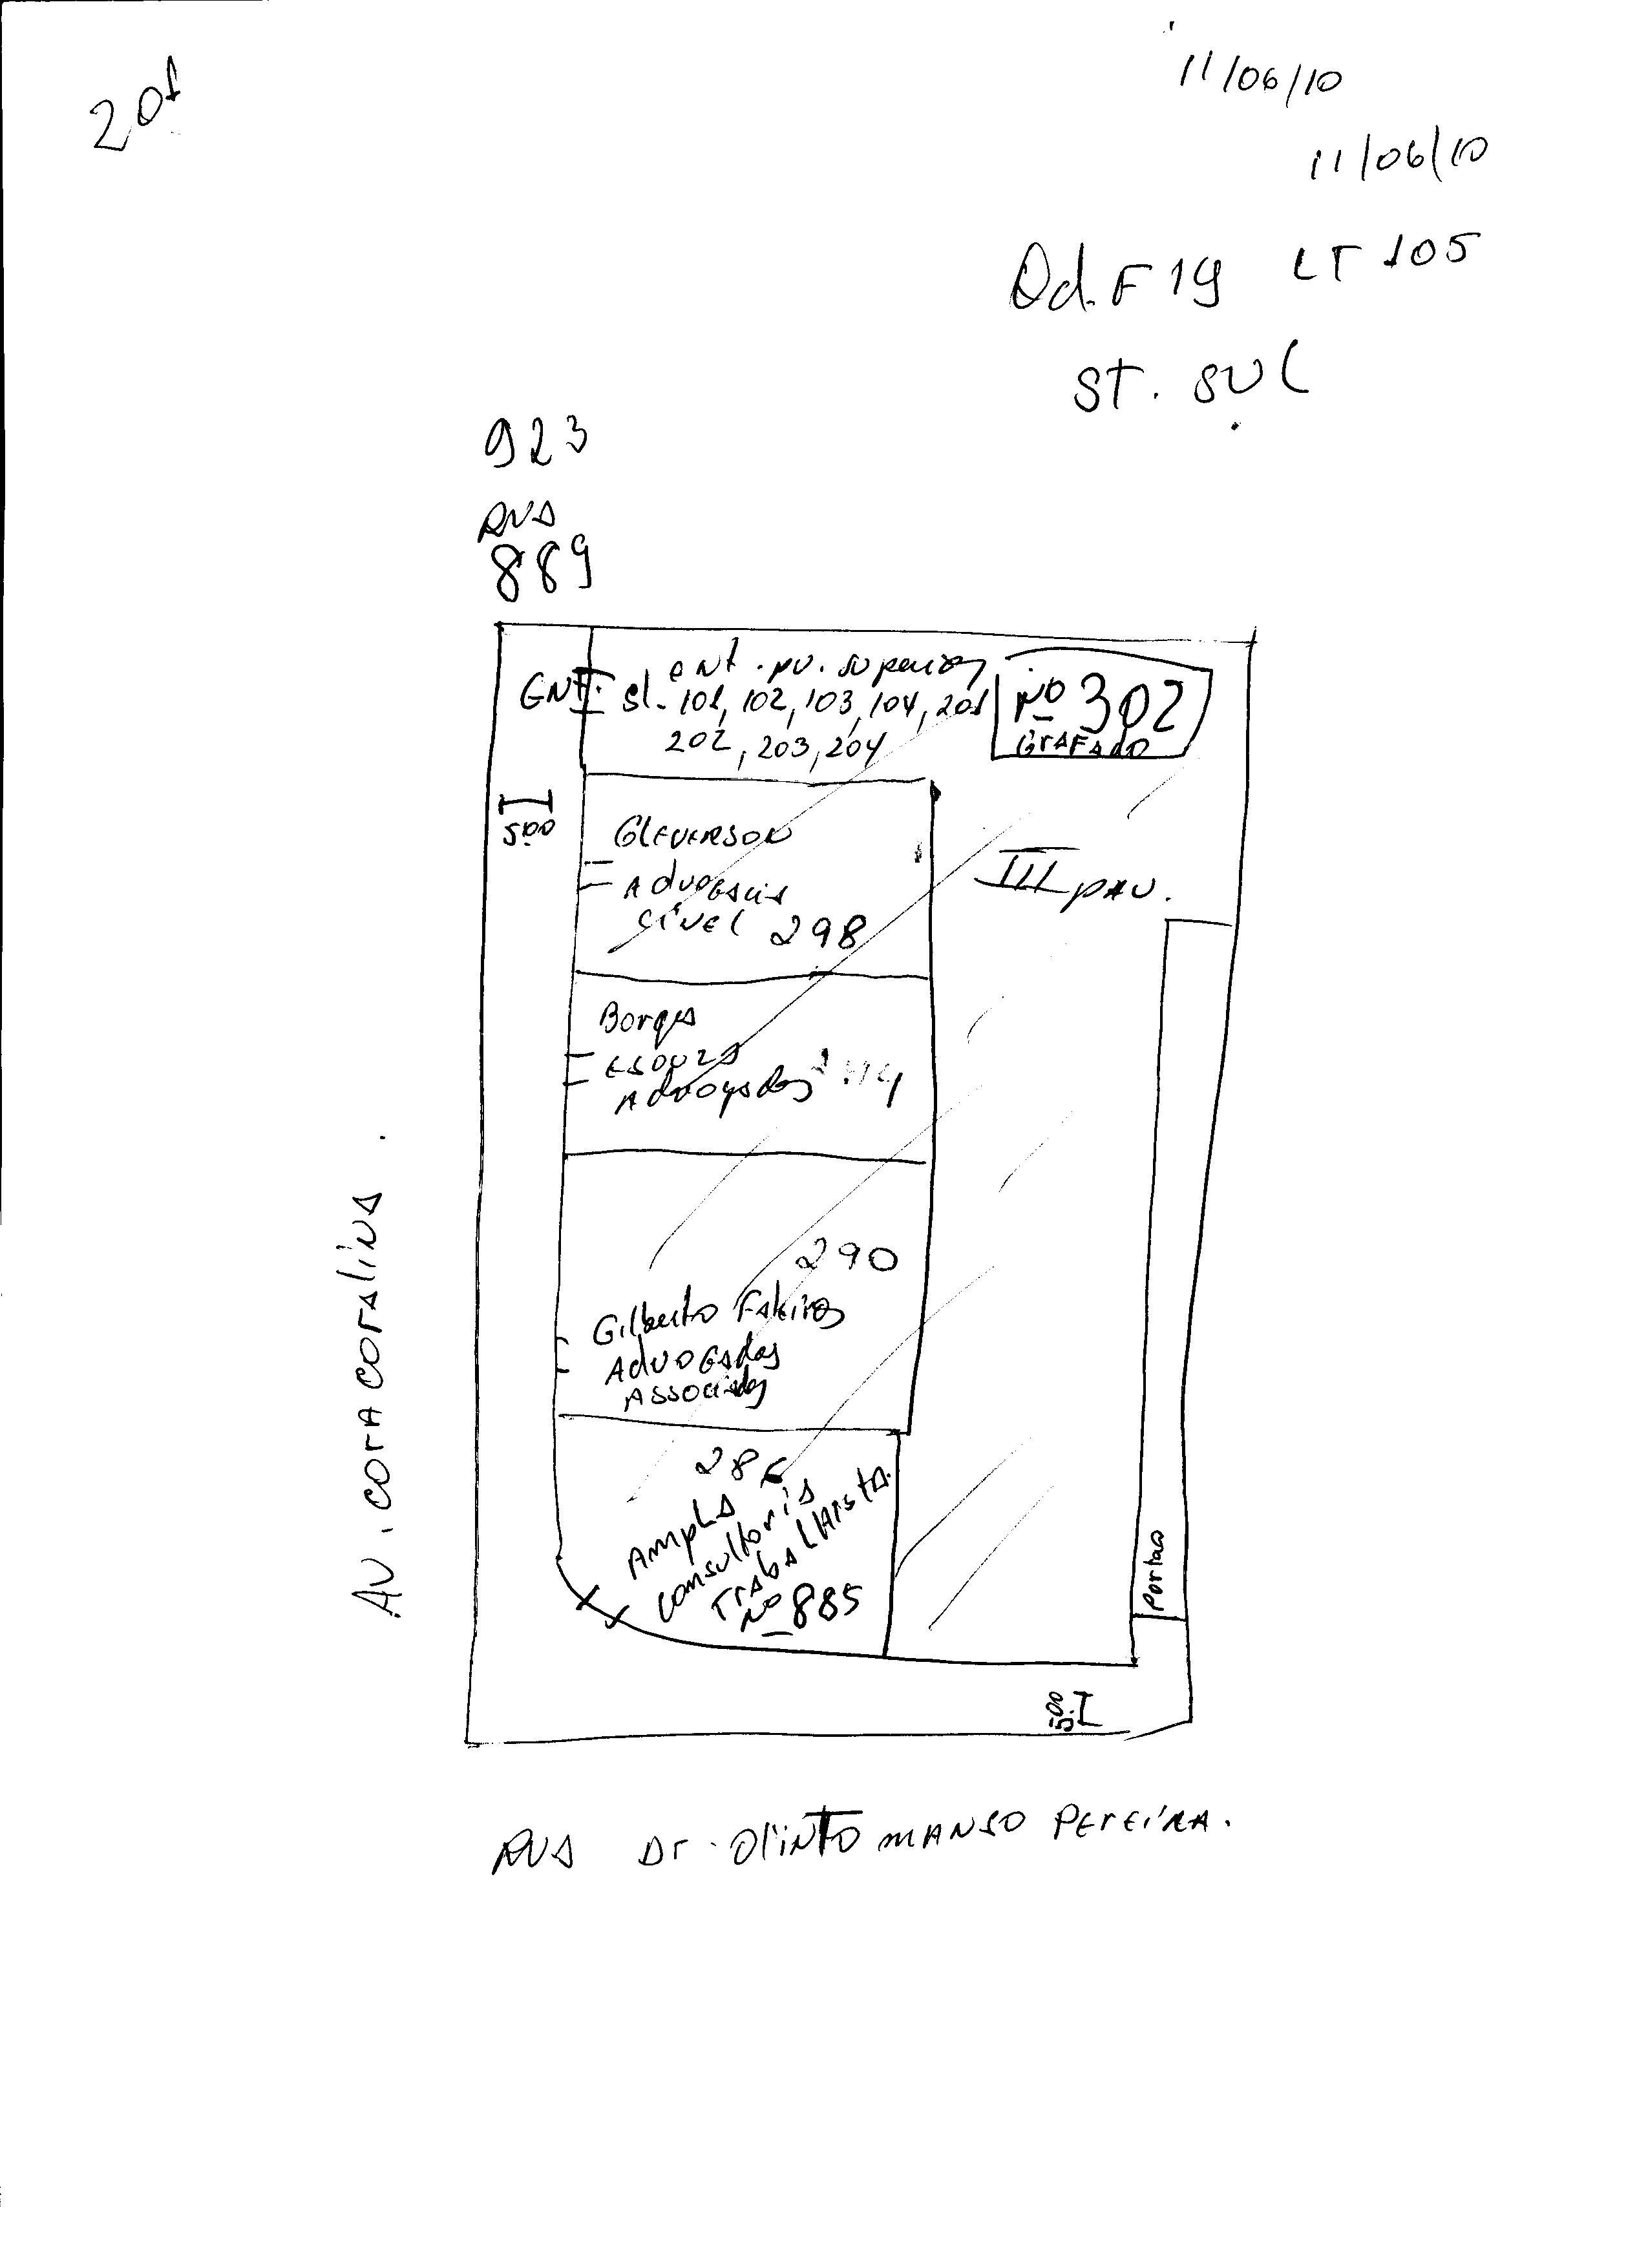 201
11/06/10
11/06/10
Qd. F 19 LT 105
ST. SUL
923
RUA
889
ENT.
ent. pv. superior
sl. 101, 102, 103, 104, 201
202, 203, 204
Nº 302
GrAFADO
5.00
GlEVERSON
Advogacia
CíVEl 298
III pav.
Borges
E SOUZA
Advogados
290
Gilberto Faleiros
Advogados
Associados
286
Ampla
consultoria
TrabalhistA.
Nº 885
Portao
5.00
AV. COrA COrAlíNA.
RUA Dr. OlíNTO MANSO PEREíRA.